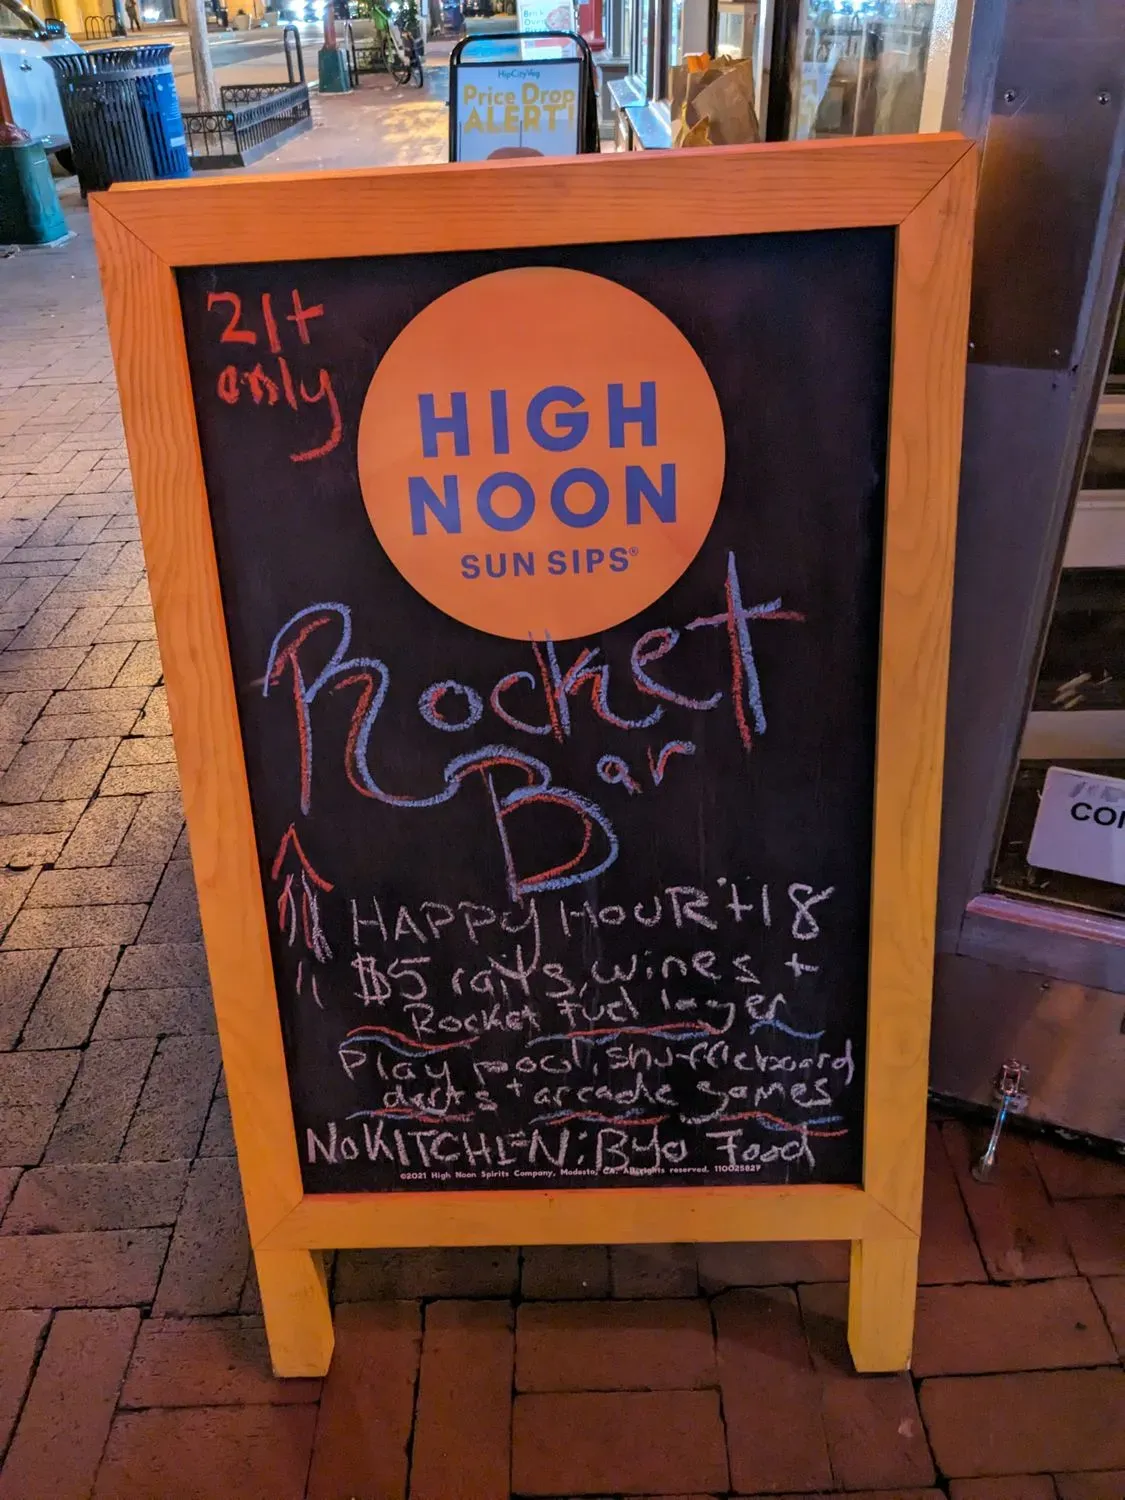 HipCityVeg
Price Drop
ALERT!
21+
only
HIGH
NOON
SUN SIPS®
Rocket
Bar
HAPPY HOUR 'til 8
$5 rails, wines +
Rocket Fuel lager
Play pool, shuffleboard
darts + arcade games
NO KITCHEN: BYO Food
©2021 High Noon Spirits Company, Modesto, CA. All rights reserved. 110025827